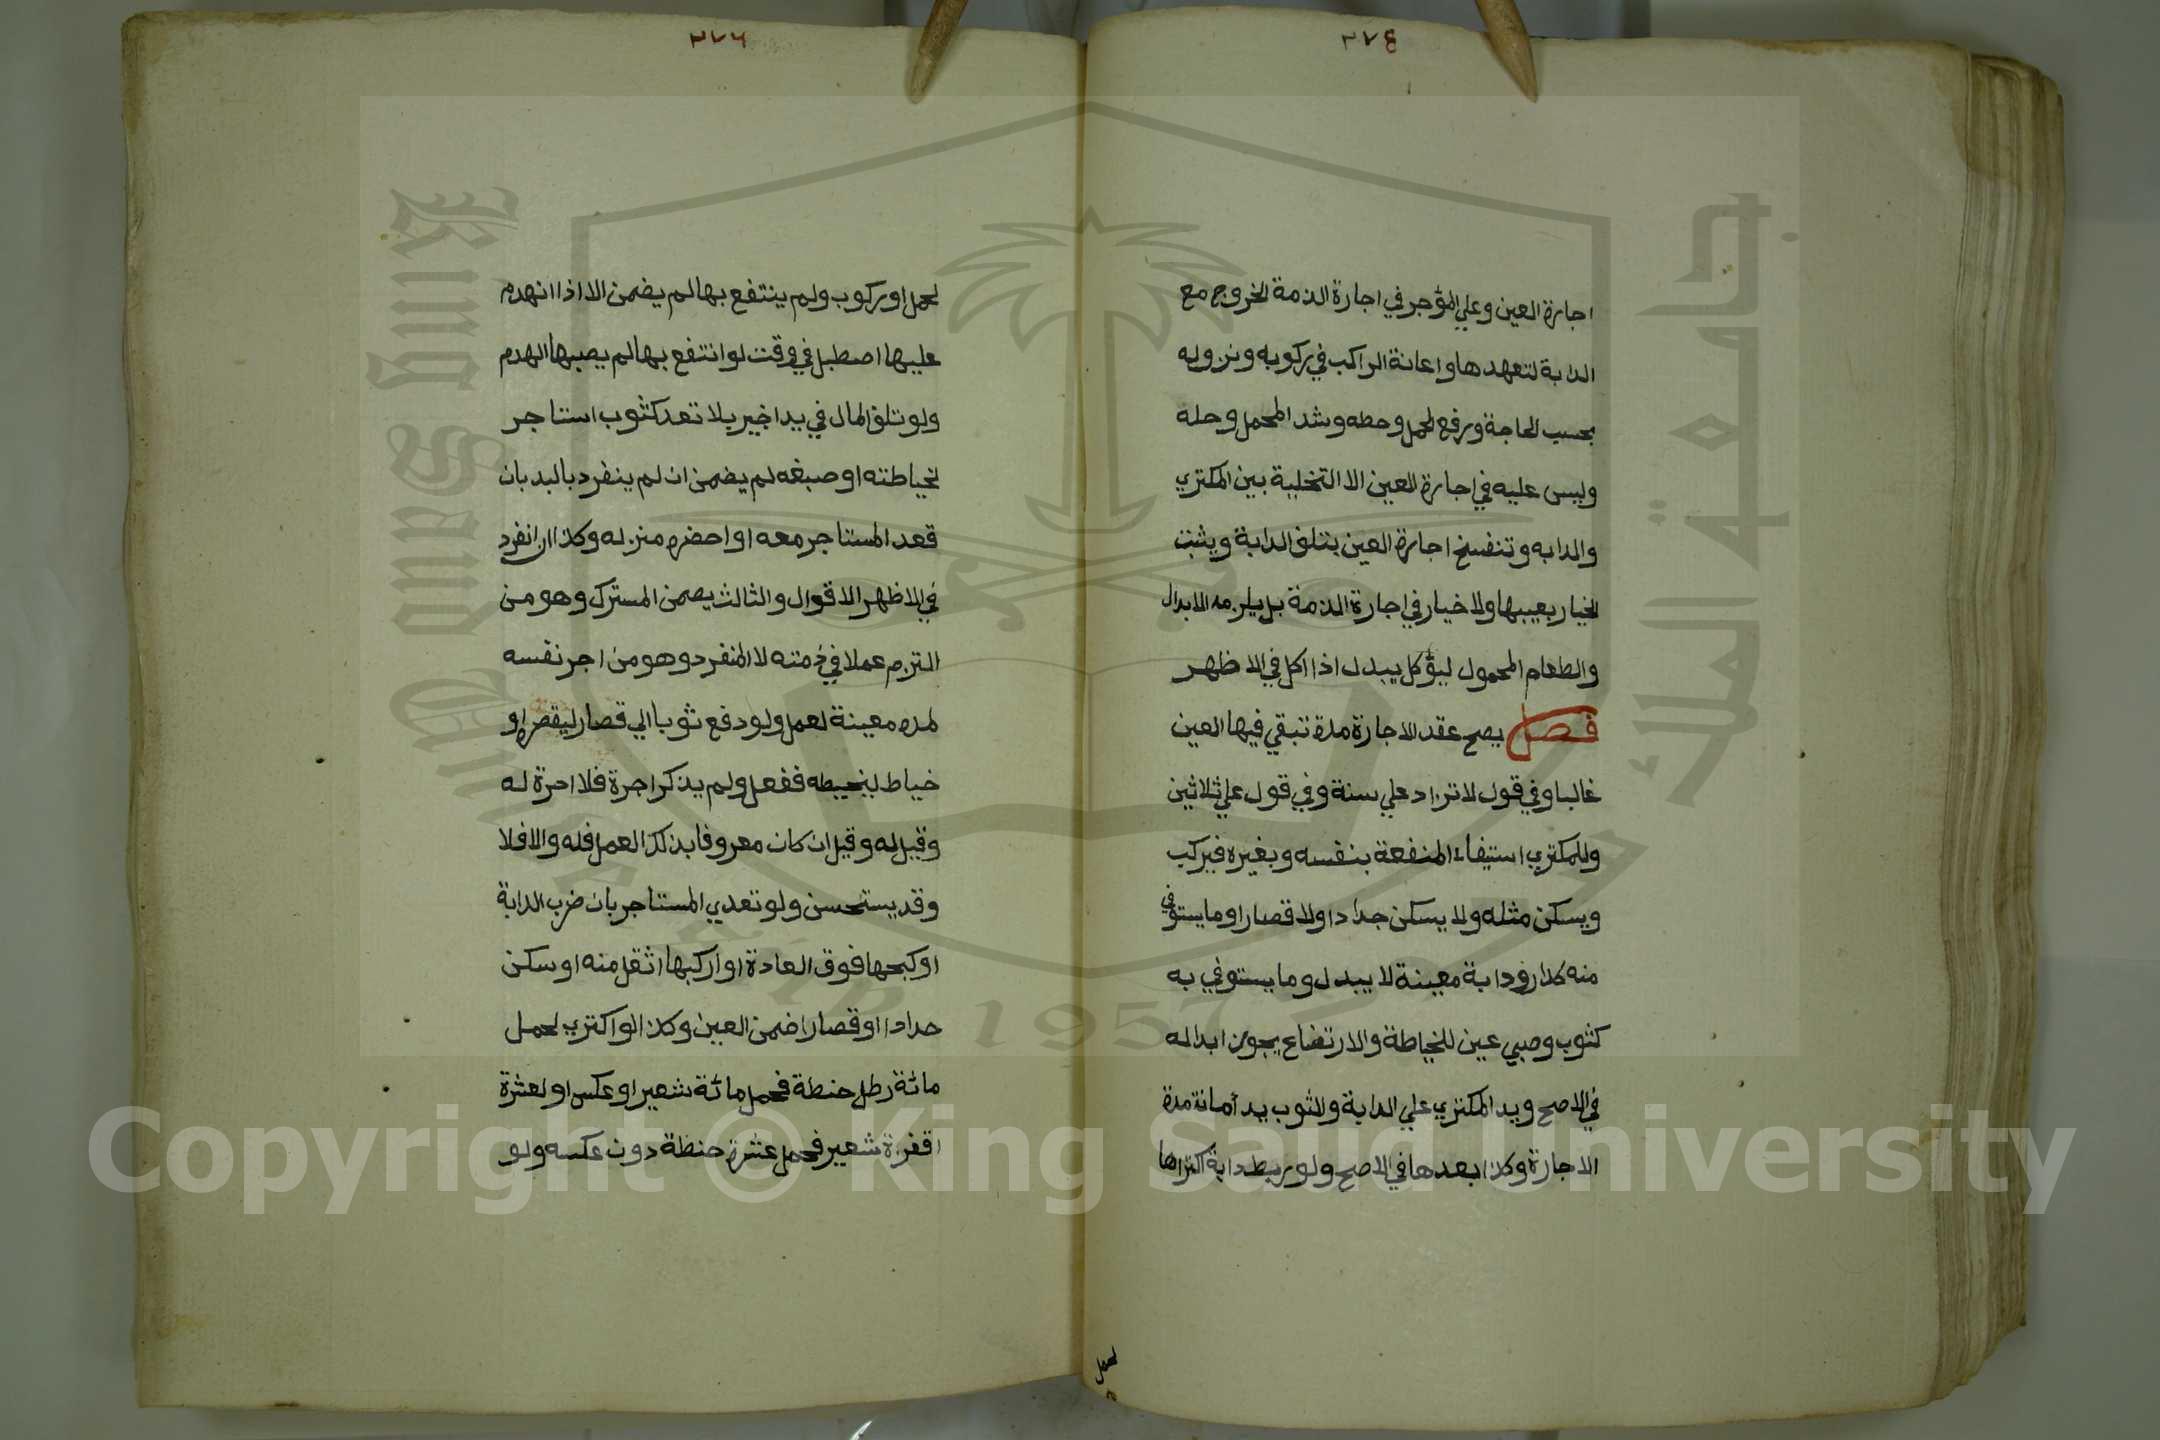 ٢٧٤
اجارة العين وعلي المؤجر في اجارة الذمة الخروج مع
الدابة لتعهدها واعانة الراكب في ركوبه ونزوله
بحسب الحاجة ورفع الحمل وحطه وشد المحمل وحله
وليس عليه في اجارة العين الا التخلية بين المكتري
والدابه وتنفسخ اجارة العين بتلف الدابة ويثبت
الخيار بعيبها ولا خيار في اجارة الذمة بل يلزمه الابدال
والطعام المحمول ليؤكل يبدل اذا اكل في الاظهر
فصل يصح عقد الاجارة مدة تبقي فيها العين
غالبا وفي قول لا تزاد علي سنة وفي قول علي ثلاثين
وللمكتري استيفاء المنفعة بنفسه وبغيره فيركب
ويسكن مثله ولا يسكن حدادا ولا قصارا وما يستوفي
منه كدار ودابة معينة لا يبدل وما يستوفي به
كثوب وصبي عين للخياطة والارتضاع يجوز ابداله
في الاصح ويد المكتري علي الدابة والثوب يد أمانة مدة
الاجارة وكذا بعدها في الاصح ولو ربط دابة اكتراها
لحمل
٢٧٦
لحمل او ركوب ولم ينتفع بها لم يضمن الا اذا انهدم
عليها اصطبل في وقت لو انتفع بها لم يصبها الهدم
ولو تلف المال في يد اخير بلا تعد كثوب استاجر
لخياطته او صبغه لم يضمن ان لم ينفرد بالبد بان
قعد المستاجر معه او احضره منزله وكذا ان انفرد
في الاظهر الاقوال والثالث يضمن المسترك وهو من
التزم عملا في ذمته لا المنفرد وهو من اجر نفسه
لمده معينة لعمل ولو دفع ثوبا الي قصار ليقصره او
خياط ليخيطه ففعل ولم يذكر اجرة فلا اجرة له
وقيل له وقيل ان كان معروفا بذلك العمل فله والا فلا
وقد يستحسن ولو تعدي المستاجر بان ضرب الدابة
او كبحها فوق العادة او اركبها اثقل منه او سكن
حدادا او قصارا ضمن العين وكذا لو اكتري لحمل
مائة رطل حنطة فحمل مائة شعير او عكس او لعشرة
اقفزة شعير فحمل عشرة حنطة دون عكسه ولو
Copyright © King Saud University
1957